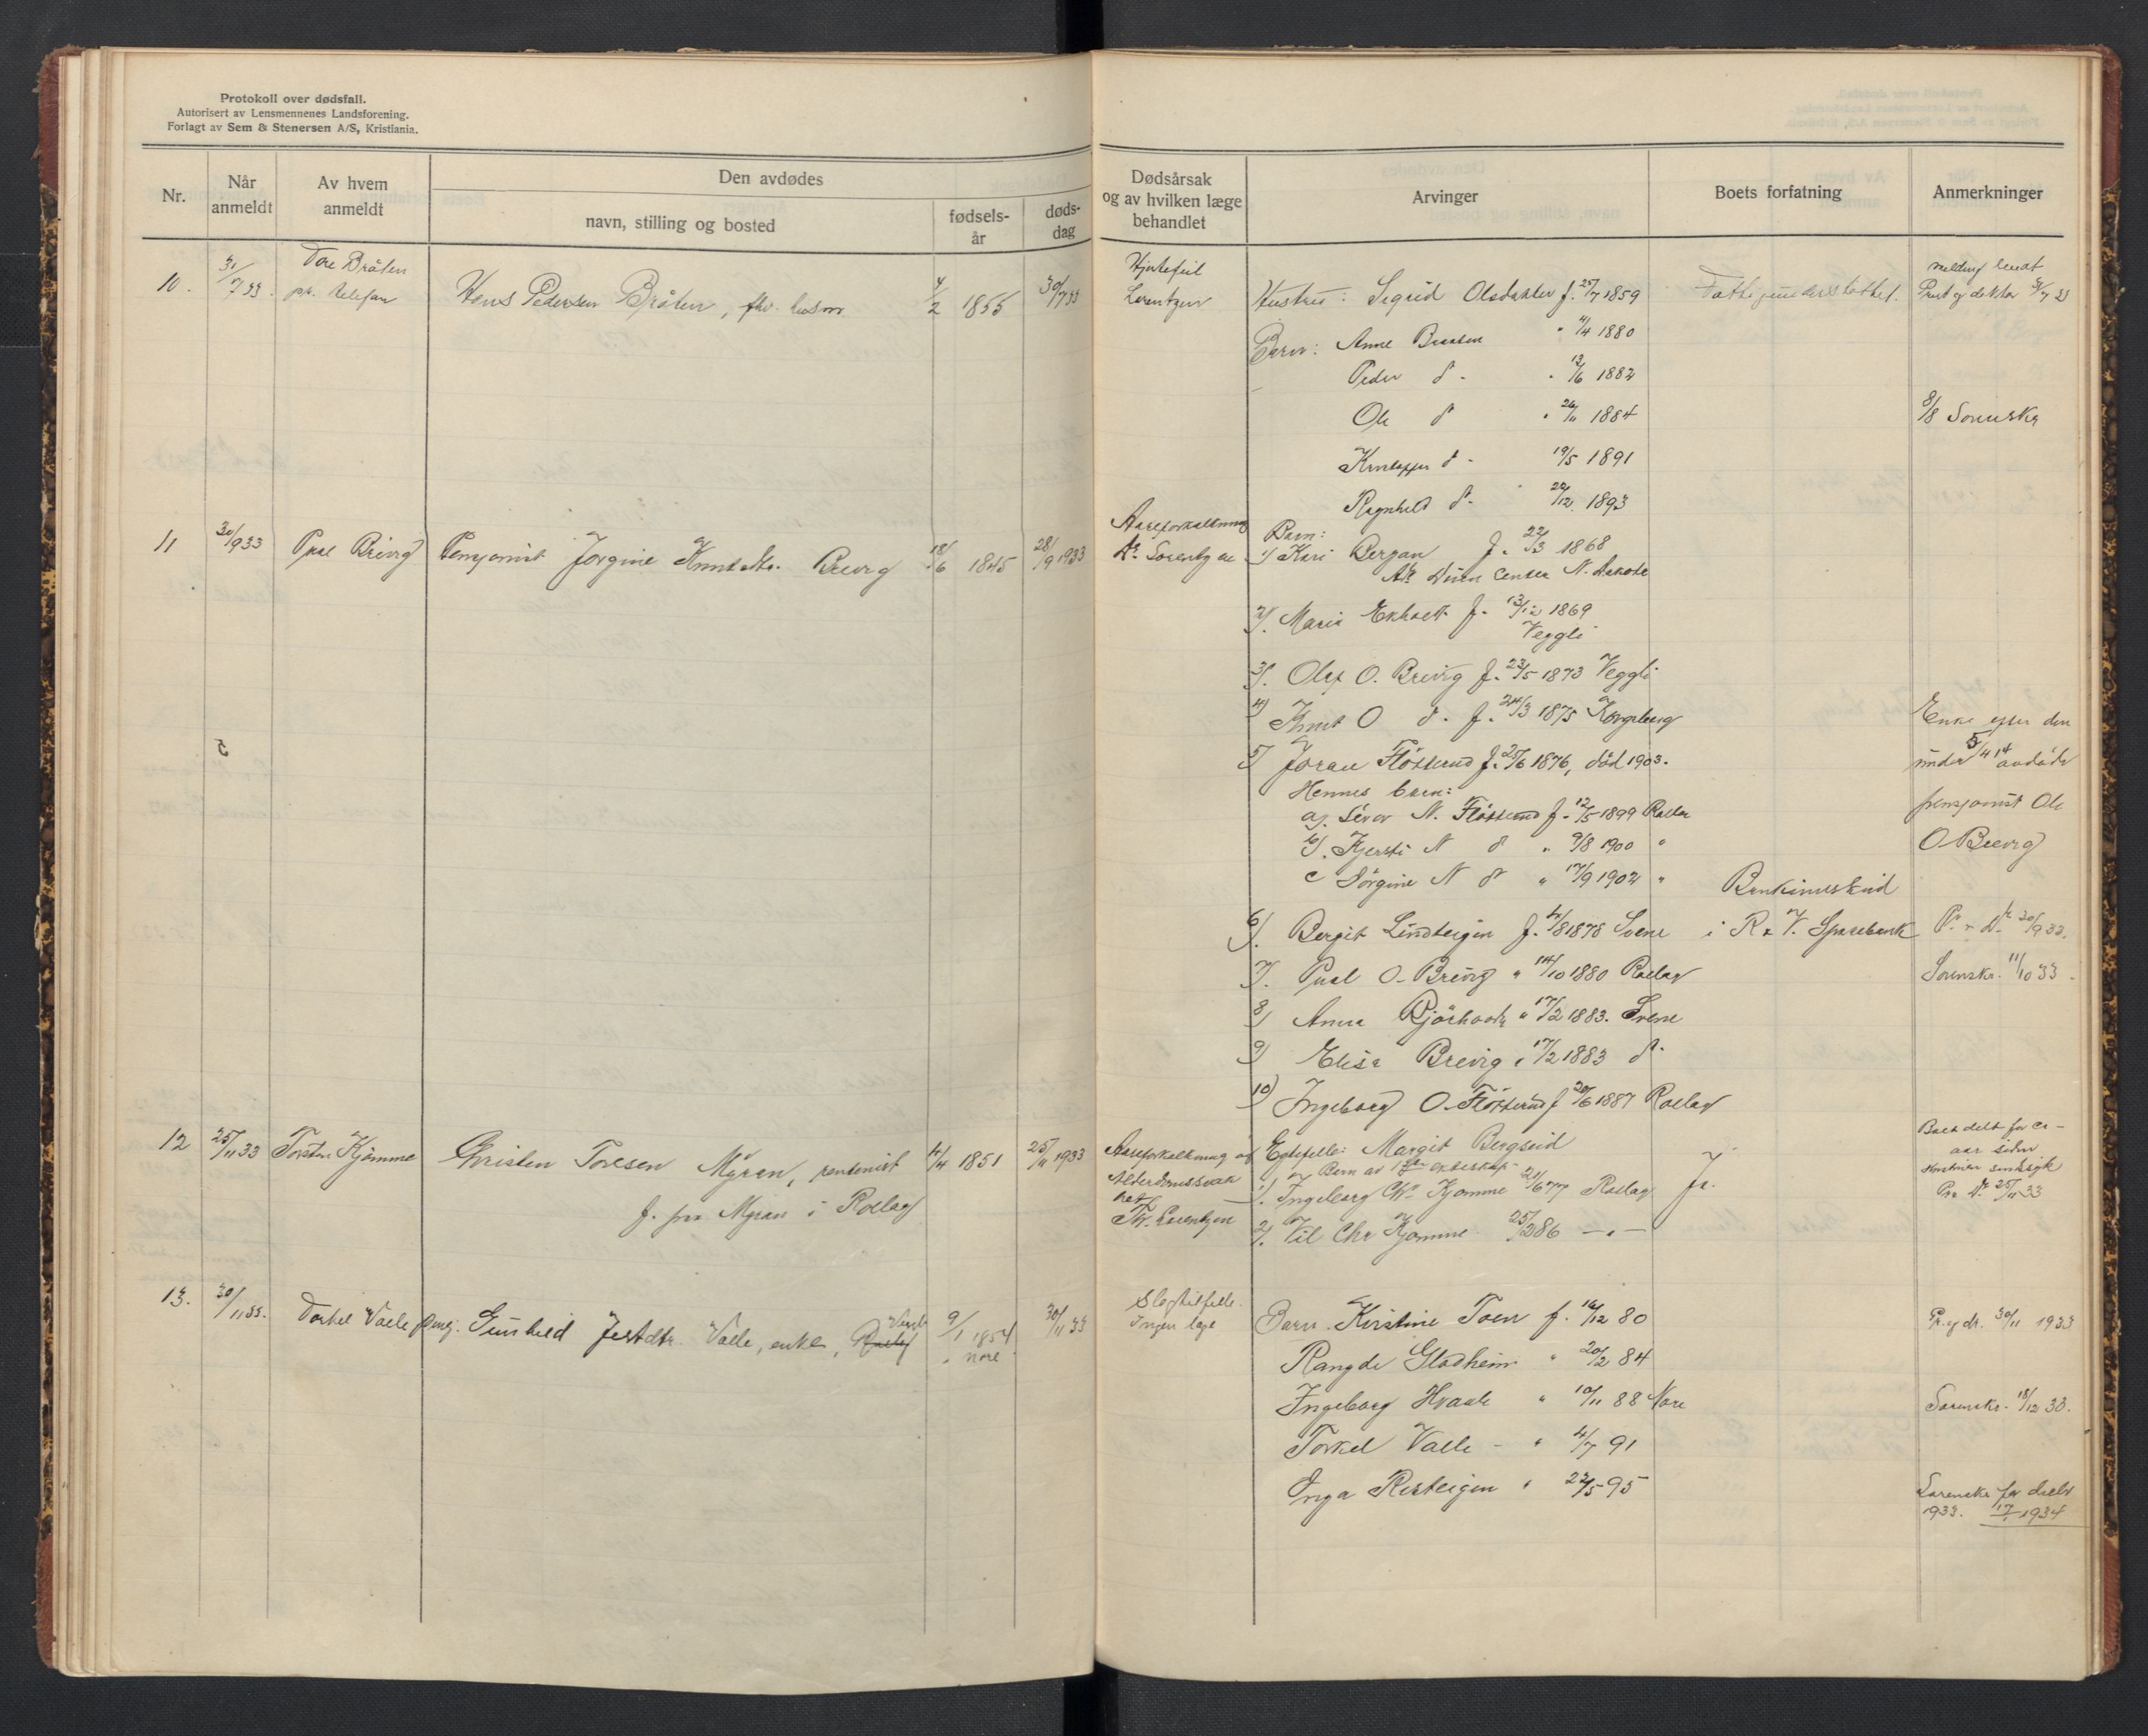 Protokoll over dødsfall.
Autorisert av Lensmennenes Landsforening.
Forlagt av Sem & Stenersen A/S, Kristiania.
Nr.
Når anmeldt
Av hvem anmeldt
Den avdødes
navn, stilling og bosted
fødsels-år
døds-dag
Dødsårsak og av hvilken læge behandlet
Arvinger
Boets forfatning
Anmerkninger
10.
31/7 33.
Tore Bråten
pr. telefon
Hans Pedersen Bråten, fhv. husm
4/2 1855
30/7 33
Hjertefeil
Lorentzen
Hustru: Sigrid Olsdatter f. 25/7 1859
Fattigunderstøttet.
melding sendt
Prest og doktor 31/7 33
Barn: Anne Braaten " 4/4 1880
Peder d - " 13/6 1882
Ole d " 26/11 1884
8/8 Sorenskr
d - 19/5 1891
Ragnhild d - " 22/12 1893
11
30/9 33
Paal Brevig
Pensjonist Jørgine Knutsdtr. Brevig
18/6 1845
28/9 1933
Aareforkalkning
Dr. Lorentzen
Barn:
1) Kari Bergan f. 22/3 1868
Adr Center N. Dakota
2). Maria Ekholt f. 13/12 1869
Veggli
3). Olaf O. Brevig f. 23/5 1873 Veggli
4) Knut O d. f. 24/3 1875 Kongsberg
5) Joran Fløsterud f. 25/6 1876, død 1903.
Hennes barn:
a). N. Fløsterud f. 12/5 1899 Rollag
b). Kjersti N d " 9/8 1900 "
c Jörgine N d " 17/9 1902 "
6). Bergit Lindteigen f. 4/8 1878 Svene
7). Paal O. Brevig " 14/10 1880 Rollag
8) Anna " 17/2 1883. Svene
9) Elise Brevig " 17/2 1883 d.
10) Ingeborg O. Fløsterud f 20/6 1887 Rollag
Bankinnskud
i R & V. Sparebank
Enke efter den
under 5/4 14 avdøde
pensjonist Ole
O Brevig
P. & Dr. 30/9 33.
Sorenskr. 11/10 33.
12
25/11 33
Torsten Kjømme
Christen Toresen Myran, rentenist
f. paa Myran i Rollag
4/4 1851
25/11 1933
Aareforkalkning og
Alderdomssvak
het
Dr. Lorentzen
Egtefelle: Margit Bergseid
Barn av 1ste ekteskap
1). Ingeborg Chr Kjømme 21/6 77 Rollag
2). Chr Kjømme 25/2 86 — " —
Ja.
Boet delt for en -
aar siden
Hustruen sindssyk
Pr & Dr 25/11 33
13.
30/11 33.
Torkel Valle
Pensj. Gunhild Jertdtr. Valle, enke, Rollag
9/1 1854
" Nore
30/11 33
Slagtilfelle
Ingen læge
Barn Kirstine Toen f. 16/12 80
Rangdi Gladheim " 20/2 84
Ingeborg Hvaale " 10/11 88 Nore
Torkel Valle - " 4/7 91
Inga Risteigen " 22/5 95
Pr. og dr. 30/11 1933
Sorenskr. 18/12 33.
Sorenskr for
1933. 1934